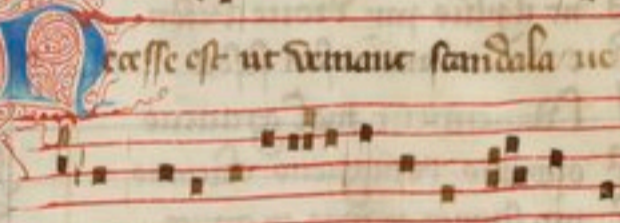 Necesse est ut veniant scandala ue